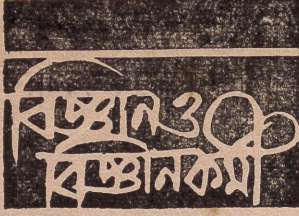 বিজ্ঞান ও
বিজ্ঞানকর্মী